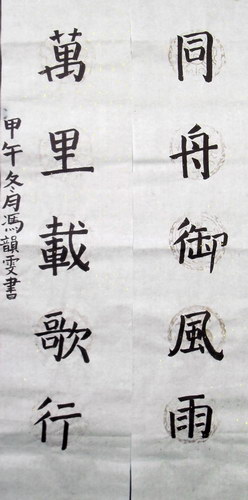 同舟御風雨
萬里載歌行
甲午冬月馮韻雯書